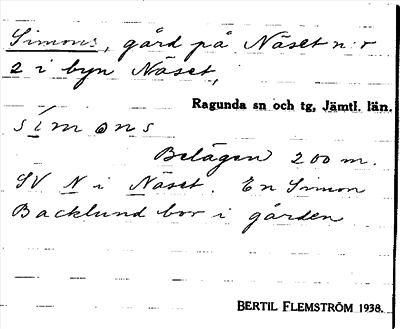 Simons, gård på Näset n:r
2 i byn Näset,
Ragunda sn och tg, Jämtl. län.
símons
Belägen 200 m.
SV N i Näset. En Simon
Backlund bor i gården
BERTIL FLEMSTRÖM 1938.